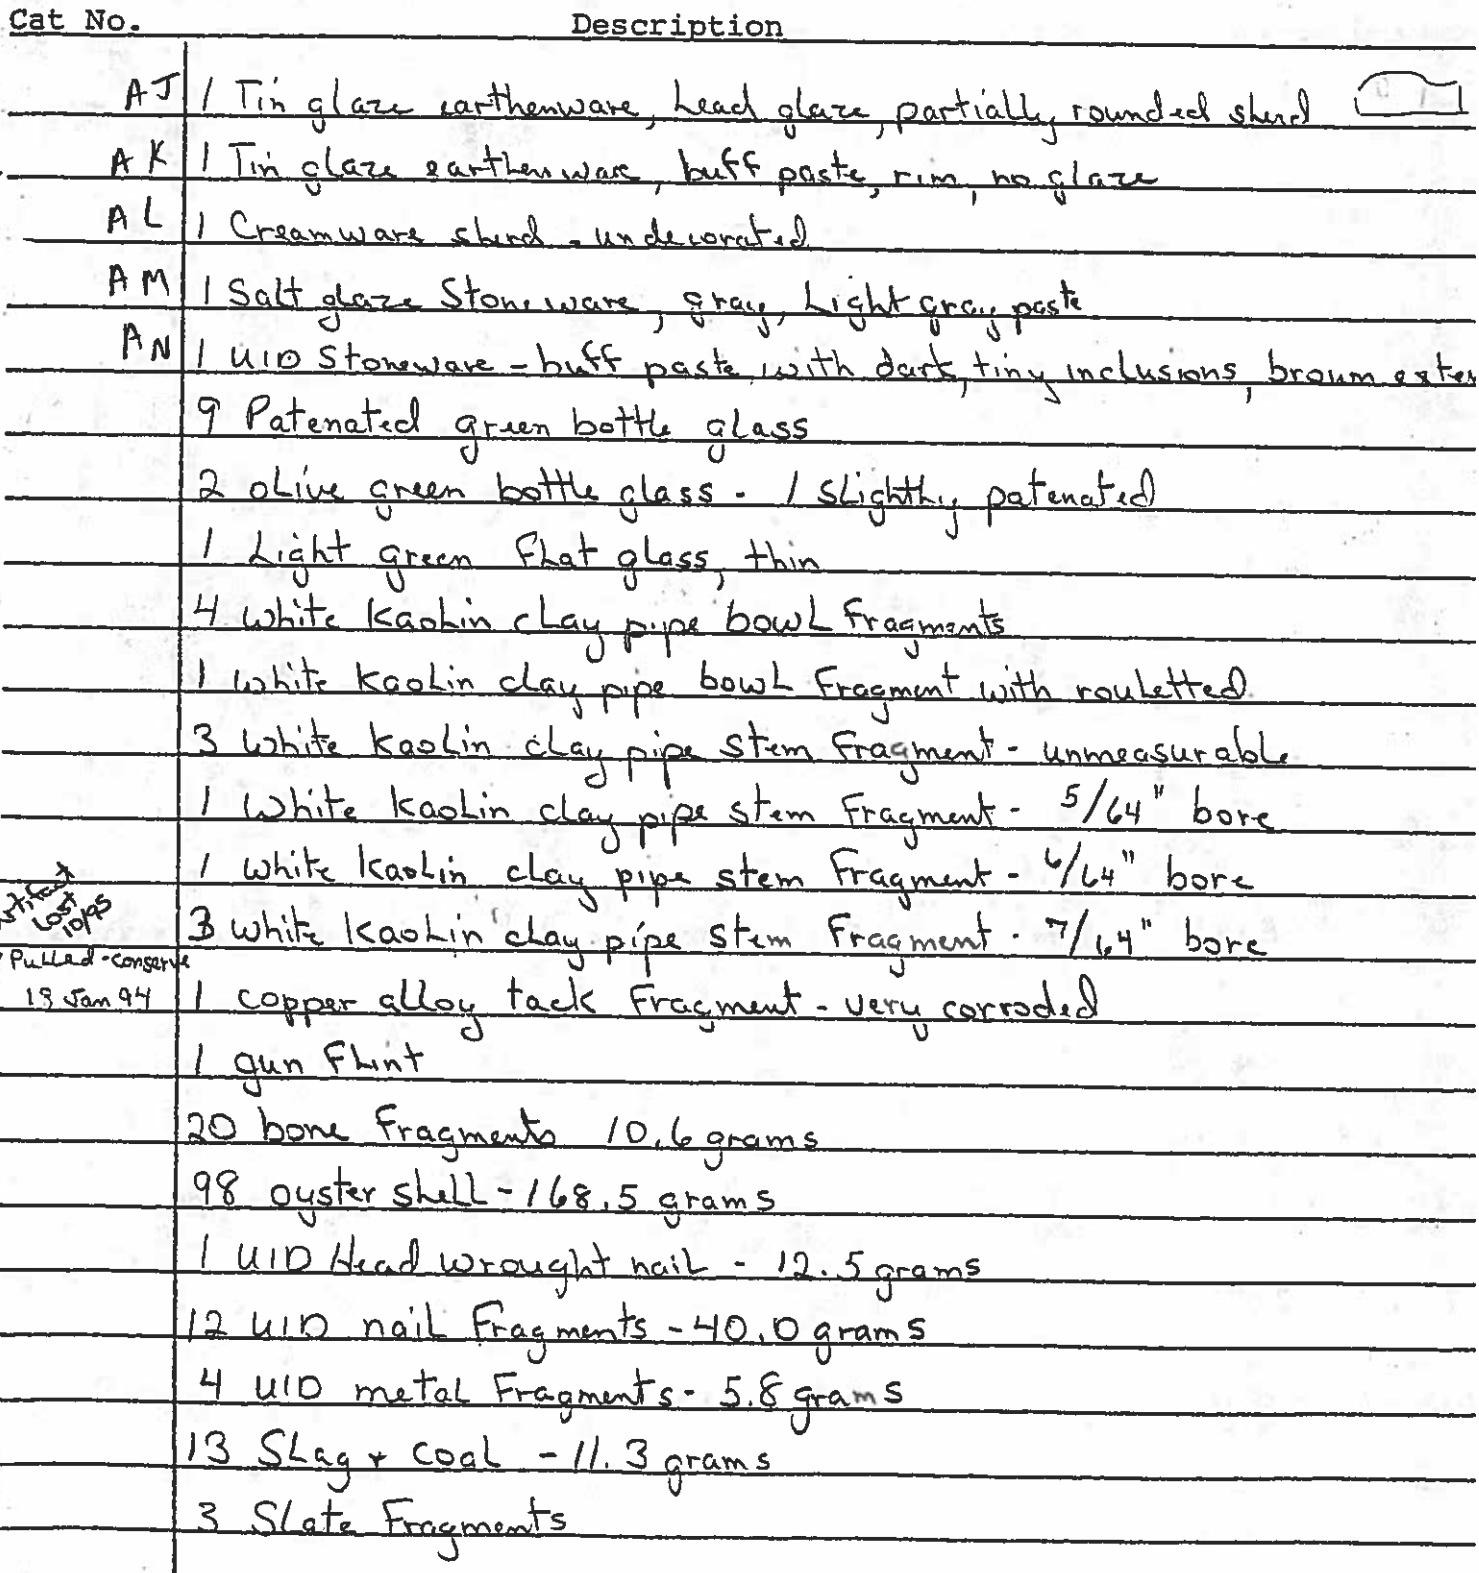 Cat No. Description
AJ 1 Tin glaze earthenware, Lead glaze, partially rounded sherd
AK 1 Tin glaze earthenware, buff paste, rim, no glaze
AL 1 Creamware sherd - undecorated
AM 1 Salt glaze Stoneware, gray, Light gray paste
AN 1 UID Stoneware - buff paste with dark, tiny inclusions, brown exter
9 Patenated green bottle glass
2 olive green bottle glass - 1 slighthy patenated
1 Light green Flat glass, thin
4 white Kaolin clay pipe bowl Fragments
1 white Kaolin clay pipe bowl Fragment with rouletted
3 white Kaolin clay pipe stem Fragment - unmeasurable
1 White Kaolin clay pipe stem Fragment - 5/64" bore
1 white Kaolin clay pipe stem Fragment - 6/64" bore
Lost
10/95
3 white Kaolin clay pipe stem Fragment - 7/64" bore
Pulled - conserve
18 Jan 94 1 copper alloy tack Fragment - very corroded
1 gun Flint
20 bone Fragments 10.6 grams
98 oyster shell - 168.5 grams
1 UID Head wrought nail - 12.5 grams
12 UID nail Fragments - 40.0 grams
4 UID metal Fragments - 5.8 grams
13 Slag + coal - 11.3 grams
3 Slate Fragments